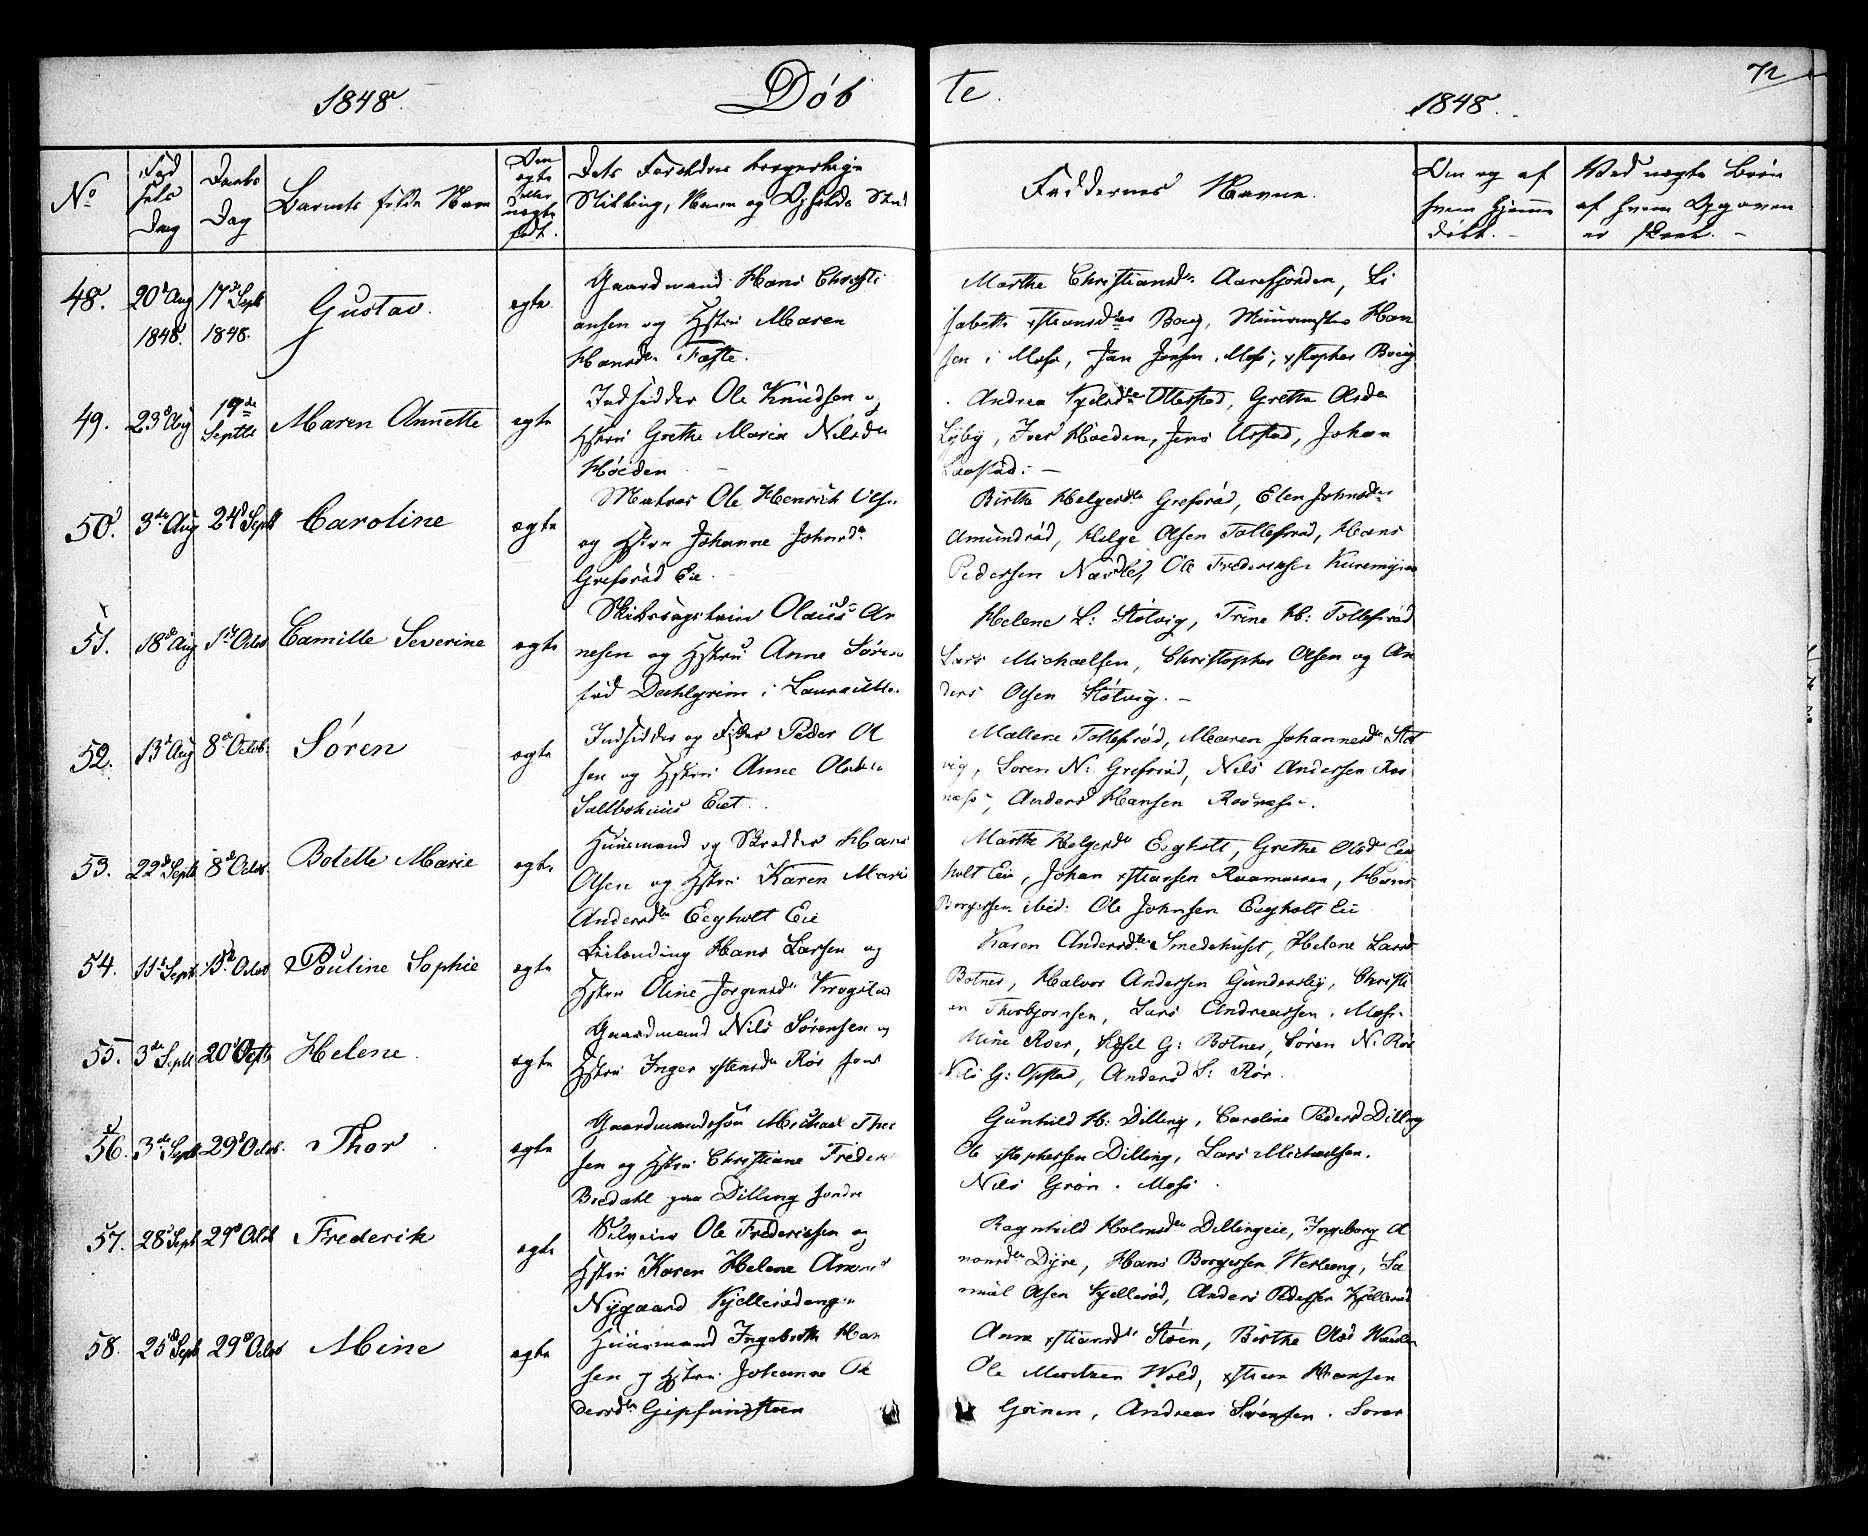 1848. Døb te. 1848. 72
No
Fød
sels
Dag
Daabs
Dag
Barnets fulde Navn
Om
egte
eller
uegte
født.
Dets Forældres borgerlige
Stilling, Navn og Opholds Sted
Faddernes Navne.
Om og af
hvem hjemme
døbt. -
Ved uegte Børn
af hvem Opgaven
er skeet. -
48. 20d Aug 17d Septb Gustav. egte
1848. 1848.
Gaardmand Hans Christi
ansen og Hstru Maren
Hansdtr Tofte.
Marthe Christiansdtr Aarefjorden, Li
sabeth xstiansdtr Boeg, Muurmester Han
sen i Moss, Jan Jensen Moss, xstopher Boeg
49. 23d Aug 17de Septb Maren Annette egte
Indsidder Ole Knudsen og
Hstru Grethe Maria Nilsdtr
Høiden
Andrea Kjelsdtr Ollestad, Grethe Olsdtr
Lyby, Iver Høiden, Jens Ørstad, Johan
50. 3die Aug 24d Septb Caroline egte
Matros Ole Henrich Olsen
og Hstru Johanne Johnsdtr
Grefsrød Eie.
Birthe Helgesdtr Grefsrød, Elen Johnsdtr
Amundrød, Helge Olsen Tollefsrød, Hans
Pedersen Nævdel, Ole Fredriksen Kuremyren
51. 18d Aug 1ste Octob Camille Severine egte
Olaus Ar
nesen og Hstru Anne Sørens
i Laurv
Helene L: Støtvig, Trine H: Tollefsrød
Lars Michaelsen, Christopher Olsen og An
ders Olsen Støtvig. -
52. 13d Aug 8d Octob. Søren egte
Indsidder og Fisker Peder Ol
sen og Hstru Anne Olsdtr
Saltbohuus Eiet.
Malene Tollefsrød, Maren Johannesdtr Støt
vig, Søren N: Grefsrød, Nils Andersen Ros
næss, Anders Hansen Rosnæss.
53. 22d Septb 8d Octob. Bolette Marie egte
Huusmand og Skredder Hans
Olsen og Hstru Karen Marie
Andersdtr Eegholt Eie
Marthe Helgesdtr Eegholt, Grethe Olsdtr Eeg
holt Eie, Johan xstiansen Rasmussen, Hans
Borgersen ibid: Ole Johnsen Eegholt Eie
54. 11d Septb 15d Octob Pouline Sophie egte
Leilending Hans Larsen og
Hstru Oline Jorgensdtr Krogstad
Karen Andersdtr Smedehuset, Helene Larsd
Botner, Halvor Andersen Gunderslby, Christi
an Thorbjornsen, Lars Andreassen. Moss.
55. 3die Septb 20d Octb Helene. egte
Gaardmand Nils Sørensen og
Hstru Inger xstensdtr Rør
Mine Roer, Sissel G: Botner, Søren N: Rør
Nils G: Opstad, Anders S: Rør.
56. 3die Septb 29d Octob. Thor egte
Gaardmandssøn Michael Thor
sen og Hstru Christiane Freder
Bredahl paa Dilling søndre
Gunhild H: Dilling, Caroline Pedersd Dilling
Ole xstophersen Dilling, Lars Michaelsen.
Nils Grøn. Moss.
57. 28d Septb 29d Octob Frederik egte
Selveier Ole Frederiksen og
Hstru Karen Helene Amunds
Nygaard Kjellerødengen
Ragnhild Holmsdtr Dillingeie, Ingeborg A
monsdtr Dyre, Hans Borgersen Værlvang, Sa
muel Olsen Kjellerød, Anders Pedersen Kjellerød
58. 25d Septb 29d Octob Mine egte
Huusmand Ingebreth Han
sen og Hstru Johanne Pe
dersdtr Gipsundsteen
Anna xstiansdtr Støen, Birthe Olsd Værlen
Ole Mortzen Wold, xstian Hansen
Goinen, Andreas Sørensen. Soner